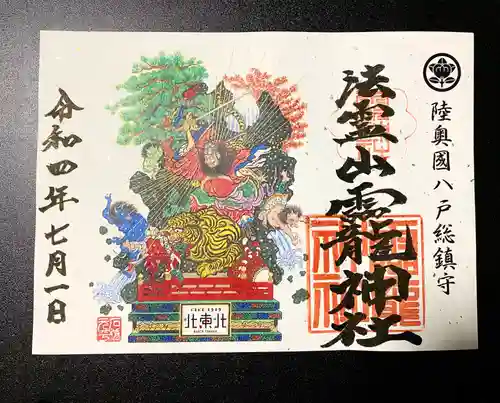 陸奥國八戸総鎮守
法霊山龗神社
令和四年七月一日
北東北